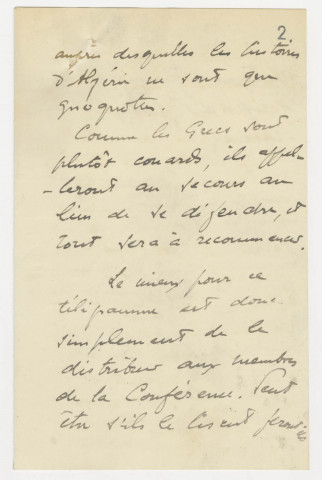 2
auprès desquelles les histoires
d'Algérie ne sont que
gnognotes.
Comme les Grecs sont
plutôt couards, ils appel-
-leront au secours au
lieu de se défendre, et
tout sera à recommencer.
Le mieux pour ce
télégramme est donc
simplement de le
distribuer aux membres
de la Conférence. Peut
être s'ils le lisent feront-ils